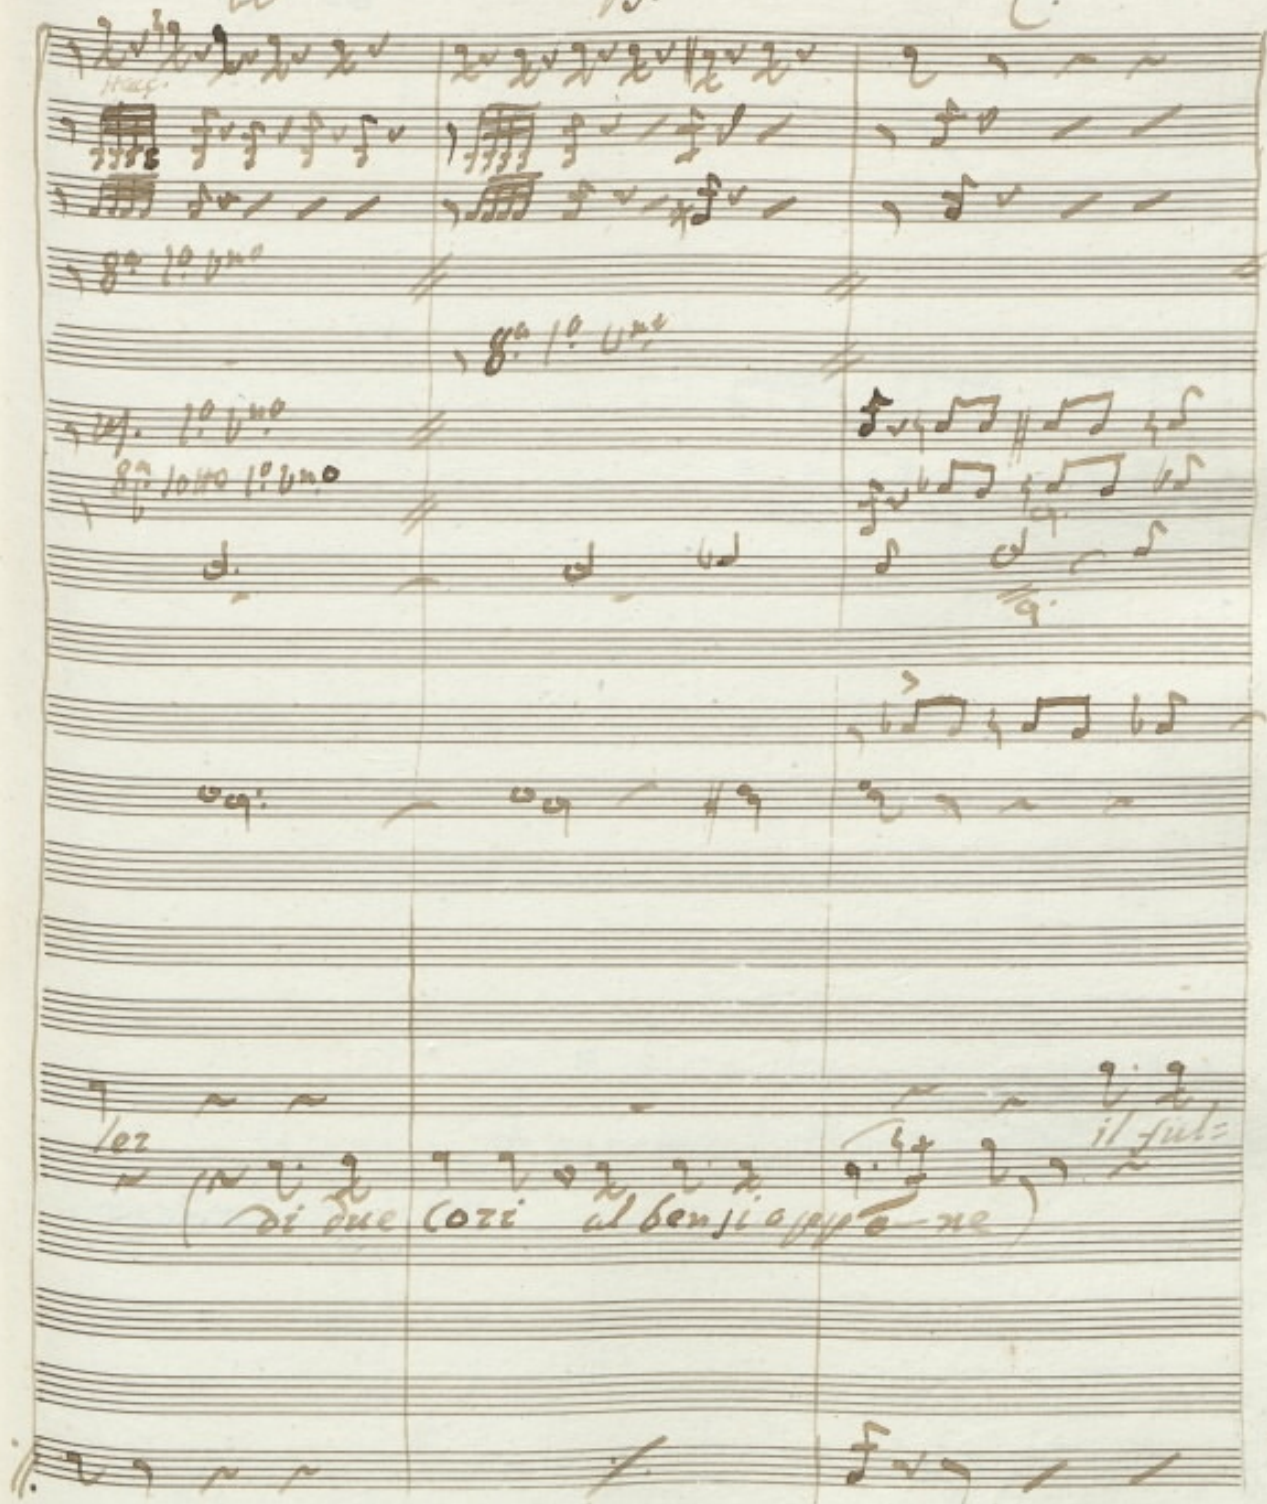 stacc.
8ª 1º Vno
8ª 1º Vno
1º Vno
8ª sotto 1º Vno
ler
il ful=
(di due cori al ben si oppo-ne)